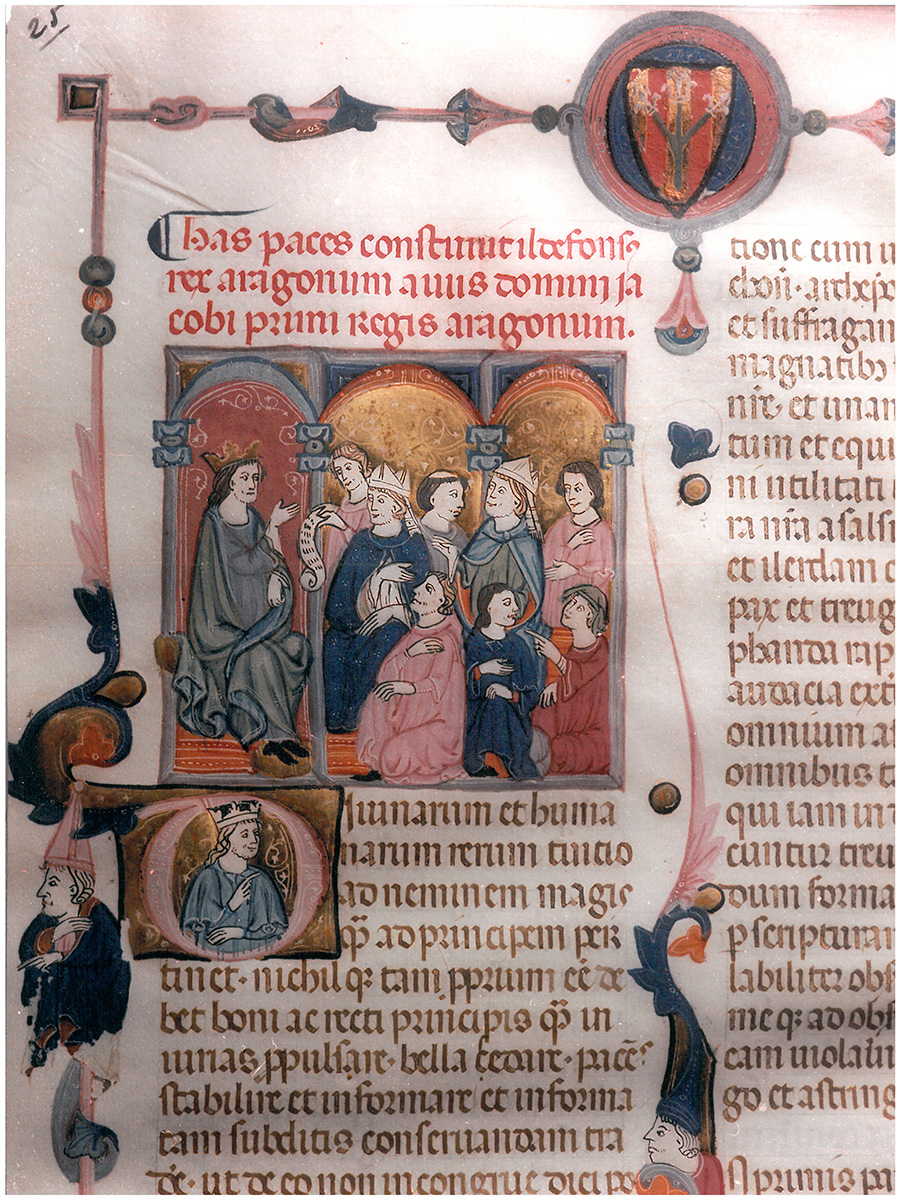 25
has paces constituit ildefons
rex aragonum auus domini ia
cobi primi regis aragonum.
Diuinarum et huma
narum rerum tuicio
ad neminem magis
q̄ ad principem per
tinet · nichil q; tam ꝓprium eē de
bet boni ac recti principis q̄ in
iurias ꝓpulsare · bella sedare · pacē
stabilire et informare et informa
tam subditis conseruandam tra
de · ut de eo non incongrue dici po
tione cum
et suffragan
magnatib
nr̄e · et unan
tum et equi
ni utilitati
ra nr̄a a salsi
et ilerdam
pax et treug
phanda rap
audacia exti
omnium
omnibus
qui iam in
cuntur treu
dum forma
p scripturan
labiliter obs
me q; ad obs
eam uiolau
go et astring
primis